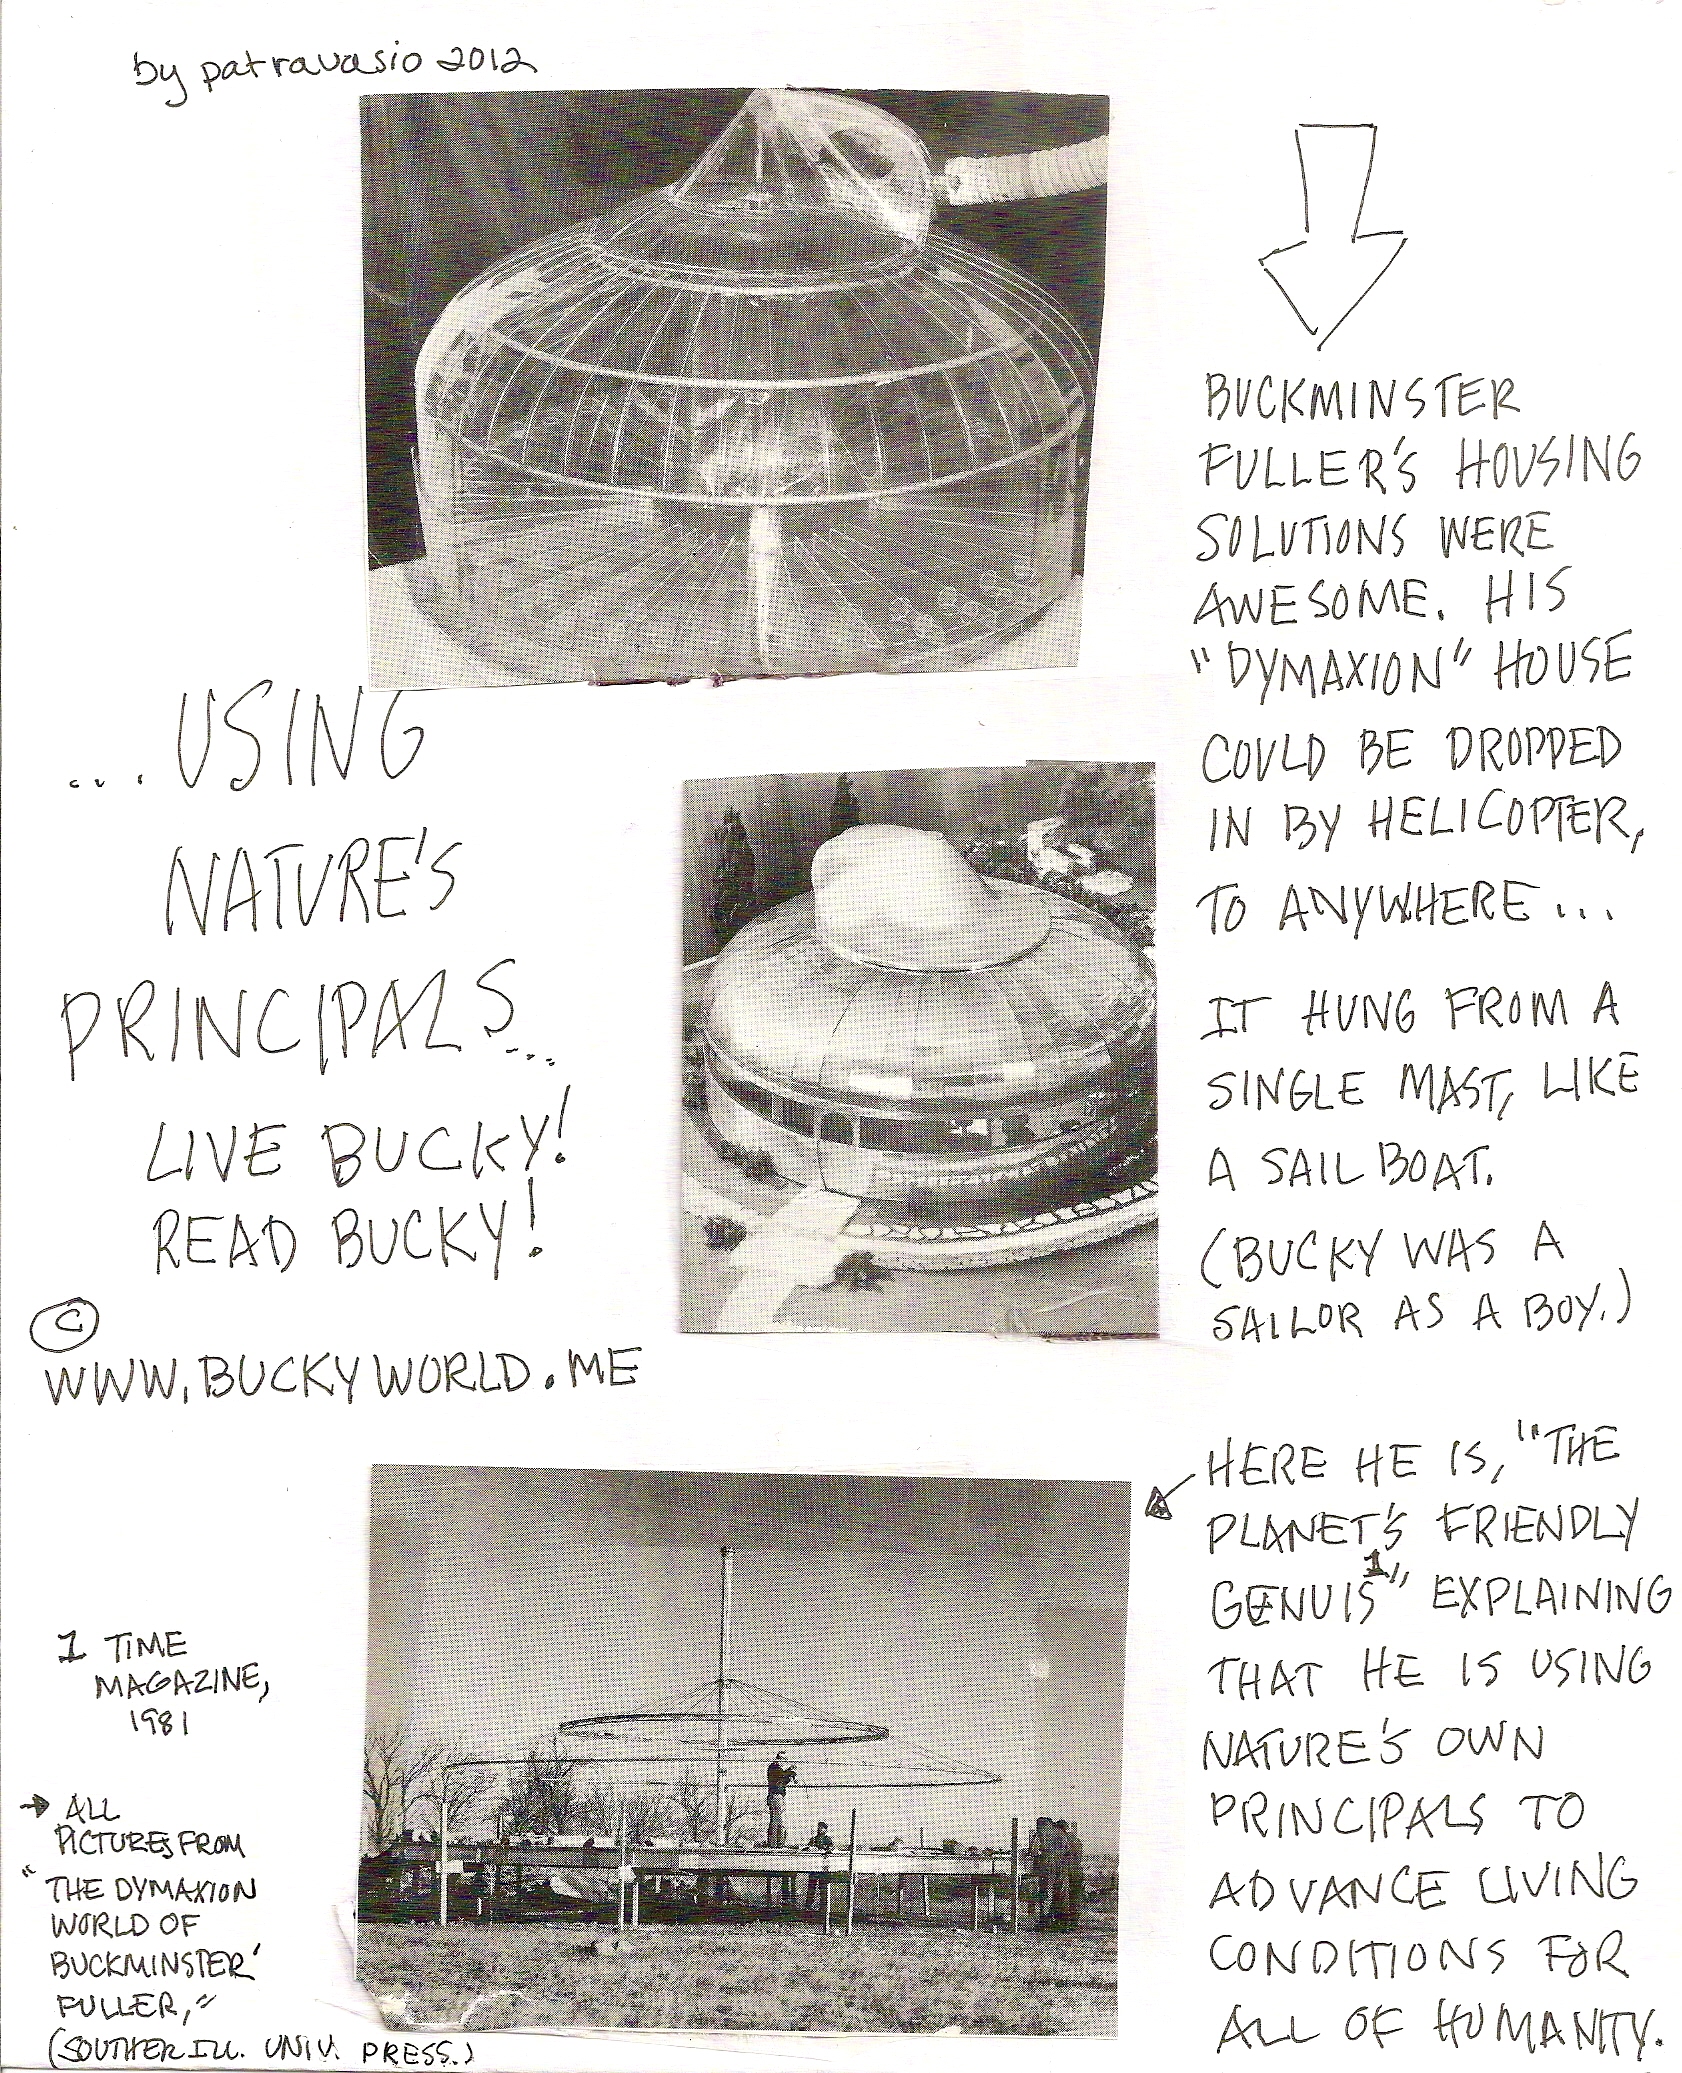 by patravasio 2012
BUCKMINSTER
FULLER'S HOUSING
SOLUTIONS WERE
AWESOME. HIS
"DYMAXION" HOUSE
COULD BE DROPPED
IN BY HELICOPTER,
TO ANYWHERE...
IT HUNG FROM A
SINGLE MAST, LIKE
A SAIL BOAT.
(BUCKY WAS A
SAILOR AS A BOY.)
HERE HE IS, "THE
PLANET'S FRIENDLY
GENUIS1" EXPLAINING
THAT HE IS USING
NATURE'S OWN
PRINCIPALS TO
ADVANCE LIVING
CONDITIONS FOR
ALL OF HUMANITY.
...USING
NATURE'S
PRINCIPALS...
LIVE BUCKY!
READ BUCKY!
©
WWW.BUCKYWORLD.ME
1 TIME
MAGAZINE,
1981
→ ALL
PICTURES FROM
"THE DYMAXION
WORLD OF
BUCKMINSTER'
FULLER,"
(SOUTHER ILL. UNIV. PRESS.)